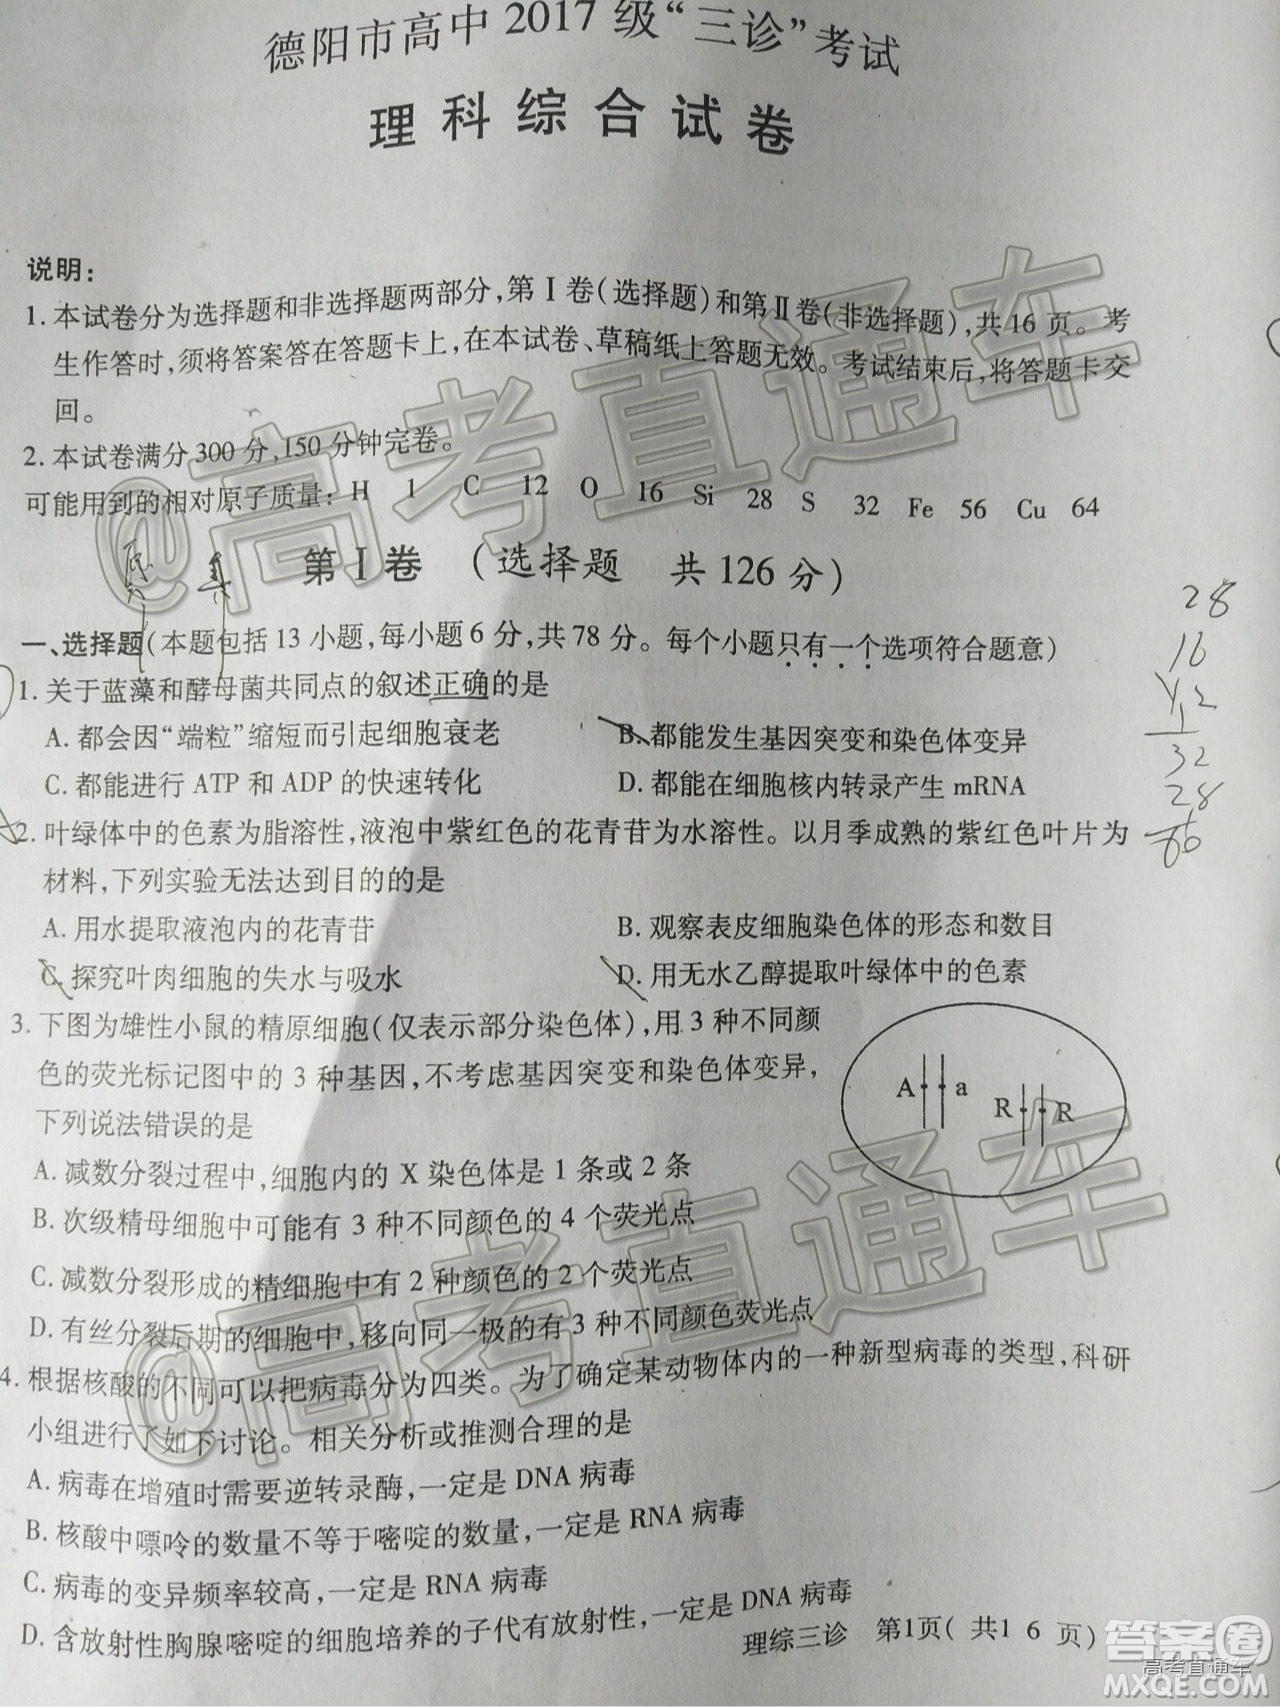 德阳市高中 2017 级“三诊”考试
理科综合试卷
说明：
1. 本试卷分为选择题和非选择题两部分，第Ⅰ卷（选择题）和第Ⅱ卷（非选择题），共 16 页。考
生作答时，须将答案答在答题卡上，在本试卷、草稿纸上答题无效。考试结束后，将答题卡交
回。
2. 本试卷满分 300 分，150 分钟完卷。
可能用到的相对原子质量：H 1 C 12 O 16 Si 28 S 32 Fe 56 Cu 64
第Ⅰ卷 （选择题 共 126 分）
一、选择题（本题包括 13 小题，每小题 6 分，共 78 分。每个小题只有一个选项符合题意）
1. 关于蓝藻和酵母菌共同点的叙述正确的是
A. 都会因“端粒”缩短而引起细胞衰老 B. 都能发生基因突变和染色体变异
C. 都能进行 ATP 和 ADP 的快速转化 D. 都能在细胞核内转录产生 mRNA
2. 叶绿体中的色素为脂溶性，液泡中紫红色的花青苷为水溶性。以月季成熟的紫红色叶片为
材料，下列实验无法达到目的的是
A. 用水提取液泡内的花青苷 B. 观察表皮细胞染色体的形态和数目
C. 探究叶肉细胞的失水与吸水 D. 用无水乙醇提取叶绿体中的色素
3. 下图为雄性小鼠的精原细胞（仅表示部分染色体），用 3 种不同颜
色的荧光标记图中的 3 种基因，不考虑基因突变和染色体变异，
下列说法错误的是
A. 减数分裂过程中，细胞内的 X 染色体是 1 条或 2 条
B. 次级精母细胞中可能有 3 种不同颜色的 4 个荧光点
C. 减数分裂形成的精细胞中有 2 种颜色的 2 个荧光点
D. 有丝分裂后期的细胞中，移向同一极的有 3 种不同颜色荧光点
A a R R
4. 根据核酸的不同可以把病毒分为四类。为了确定某动物体内的一种新型病毒的类型，科研
小组进行了如下讨论。相关分析或推测合理的是
A. 病毒在增殖时需要逆转录酶，一定是 DNA 病毒
B. 核酸中嘌呤的数量不等于嘧啶的数量，一定是 RNA 病毒
C. 病毒的变异频率较高，一定是 RNA 病毒
D. 含放射性胸腺嘧啶的细胞培养的子代有放射性，一定是 DNA 病毒
理综三诊 第1页( 共1 6 页)
28
16
32
28
@高考直通车
@高考直通车
答案圈
高考直通车
MXQE.COM